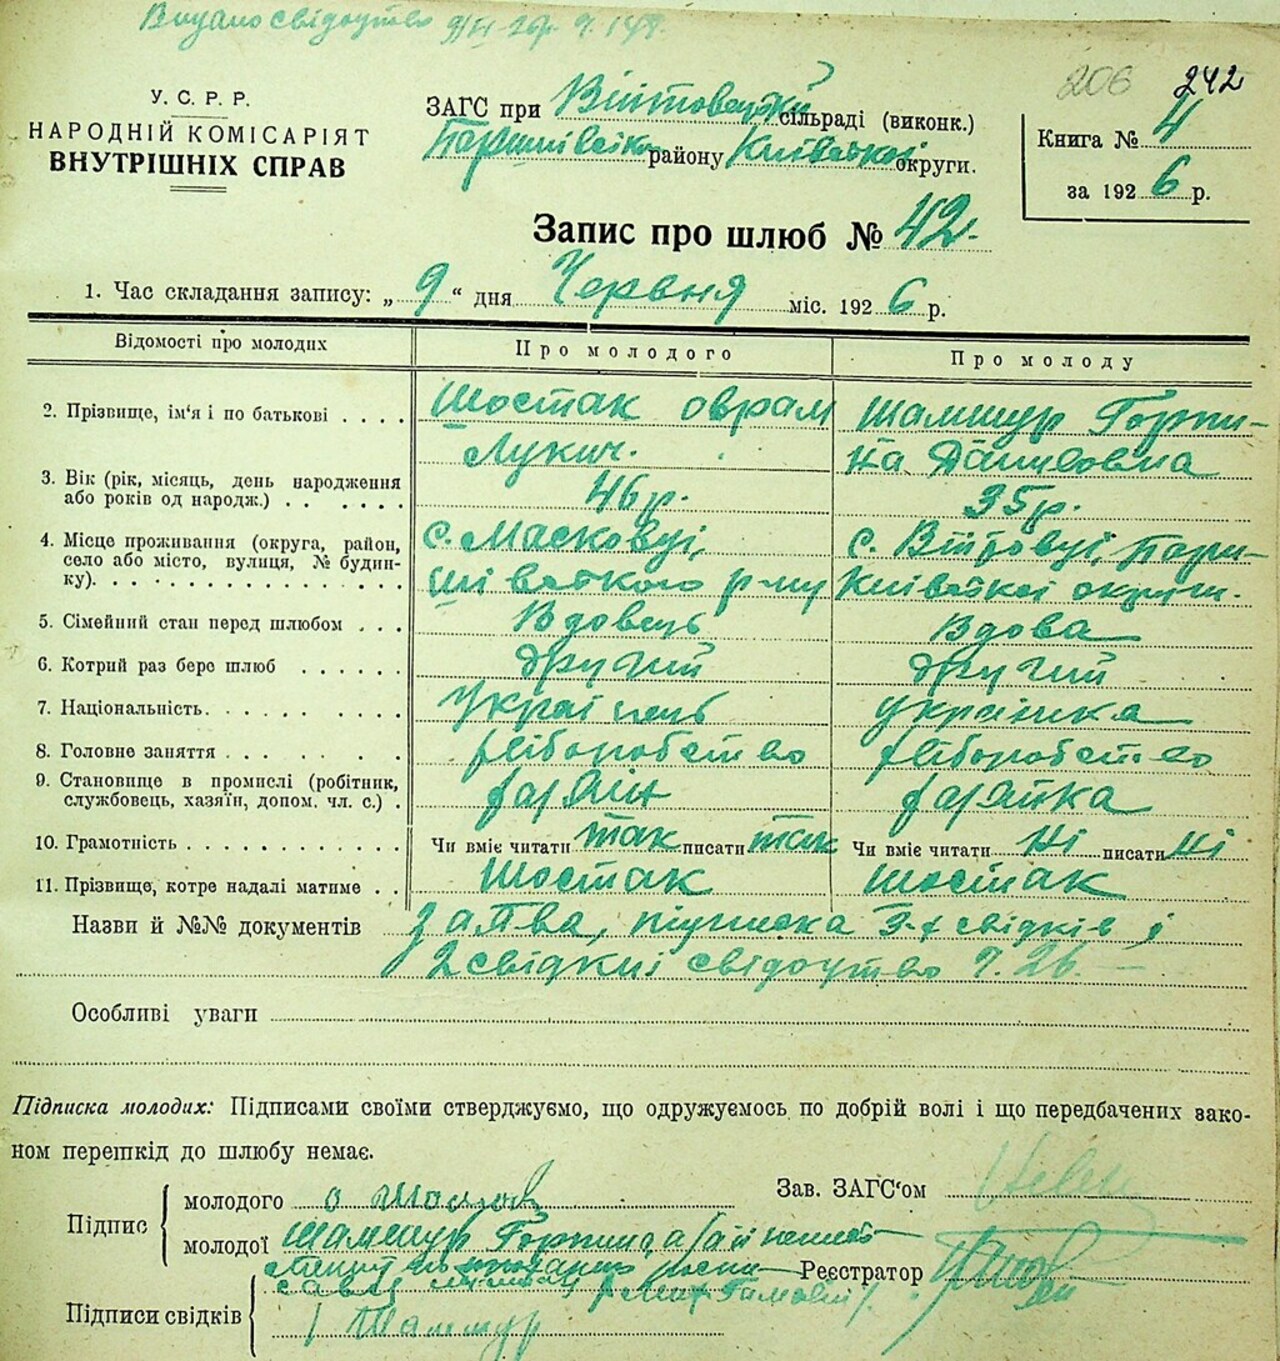 Видано свідоцтво 9/VI-26р. ч. 149.
206 242
У. С. Р. Р.
НАРОДНІЙ КОМІСАРІЯТ
ВНУТРІШНІХ СПРАВ
ЗАГС при Війтовецькій сільраді (виконк.)
Баришівськ району Київської округи.
Книга № 4
за 1926 р.
Запис про шлюб № 42.
1. Час складання запису: „ 9 “ дня Червня міс. 1926 р.
Відомості про молодих Про молодого Про молоду
2. Прізвище, ім'я і по батькові . . . . Шостак Оврам Шамшур Горпи-
Лукич. на Даниловна
3. Вік (рік, місяць, день народження
або років од народж.) . . . . . . . 46р. 35р.
4. Місце проживання (округа, район, с. Масковці, с. Війтовці, Бари-
село або місто, вулиця, № будин-
ку). . . . . . . . . . . . . . . шівського р-ну Київської округи.
5. Сімейний стан перед шлюбом . . . Вдовець Вдова
6. Котрий раз бере шлюб . . . . . . другий другий
7. Національність. . . . . . . . . . Українець Українка
8. Головне заняття . . . . . . . . хліборобство хліборобство
9. Становище в промислі (робітник,
службовець, хазяїн, допом. чл. с.) . хазяїн хазяйка
10. Грамотність . . . . . . . . . . . . Чи вміє читати так писати так Чи вміє читати ні писати ні
11. Прізвище, котре надалі матиме . . Шостак Шостак
Назви й №№ документів заява, підписка 3-х свідків і
2 свідкиі свідоцтво ч. 26.
Особливі уваги
Підписка молодих: Підписами своїми стверджуємо, що одружуємось по добрій волі і що передбачених зако-
ном перешкід до шлюбу немає.
Підпис
молодого о Шостак
Зав. ЗАГС'ом
молодої Шамшур Горпина, а за її
Реєстратор
Підписи свідків
Шамшур